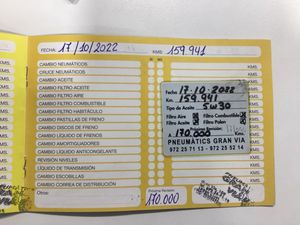 FECHA: 17/10/2022 KMS: 159.941
CAMBIO NEUMÁTICOS
CRUCE NEUMÁTICOS
CAMBIO ACEITE
CAMBIO FILTRO ACEITE
CAMBIO FILTRO AIRE
CAMBIO FILTRO COMBUSTIBLE
CAMBIO FILTRO HABITÁCULO
CAMBIO PASTILLAS DE FRENO
CAMBIO DISCOS DE FRENO
CAMBIO LÍQUIDO FRENOS
CAMBIO AMORTIGUADORES
CAMBIO LÍQUIDO ANTICONGELANTE
REVISIÓN NIVELES
LÍQUIDO DE TRANSMISIÓN
CAMBIO ESCOBILLAS
CAMBIO CORREA DE DISTRIBUCIÓN
Otros:
Próxima Revisión:
170.000
KMS.
Fecha 17.10.2022
Km. 159.941
Tipo de Aceite 5W30
Filtro Aire Filtro Combustible
Filtro Aceite Filtro Polen
A 170.000
PNEUMÀTICS GRAN VIA
972 25 71 13 - 972 25 52 14